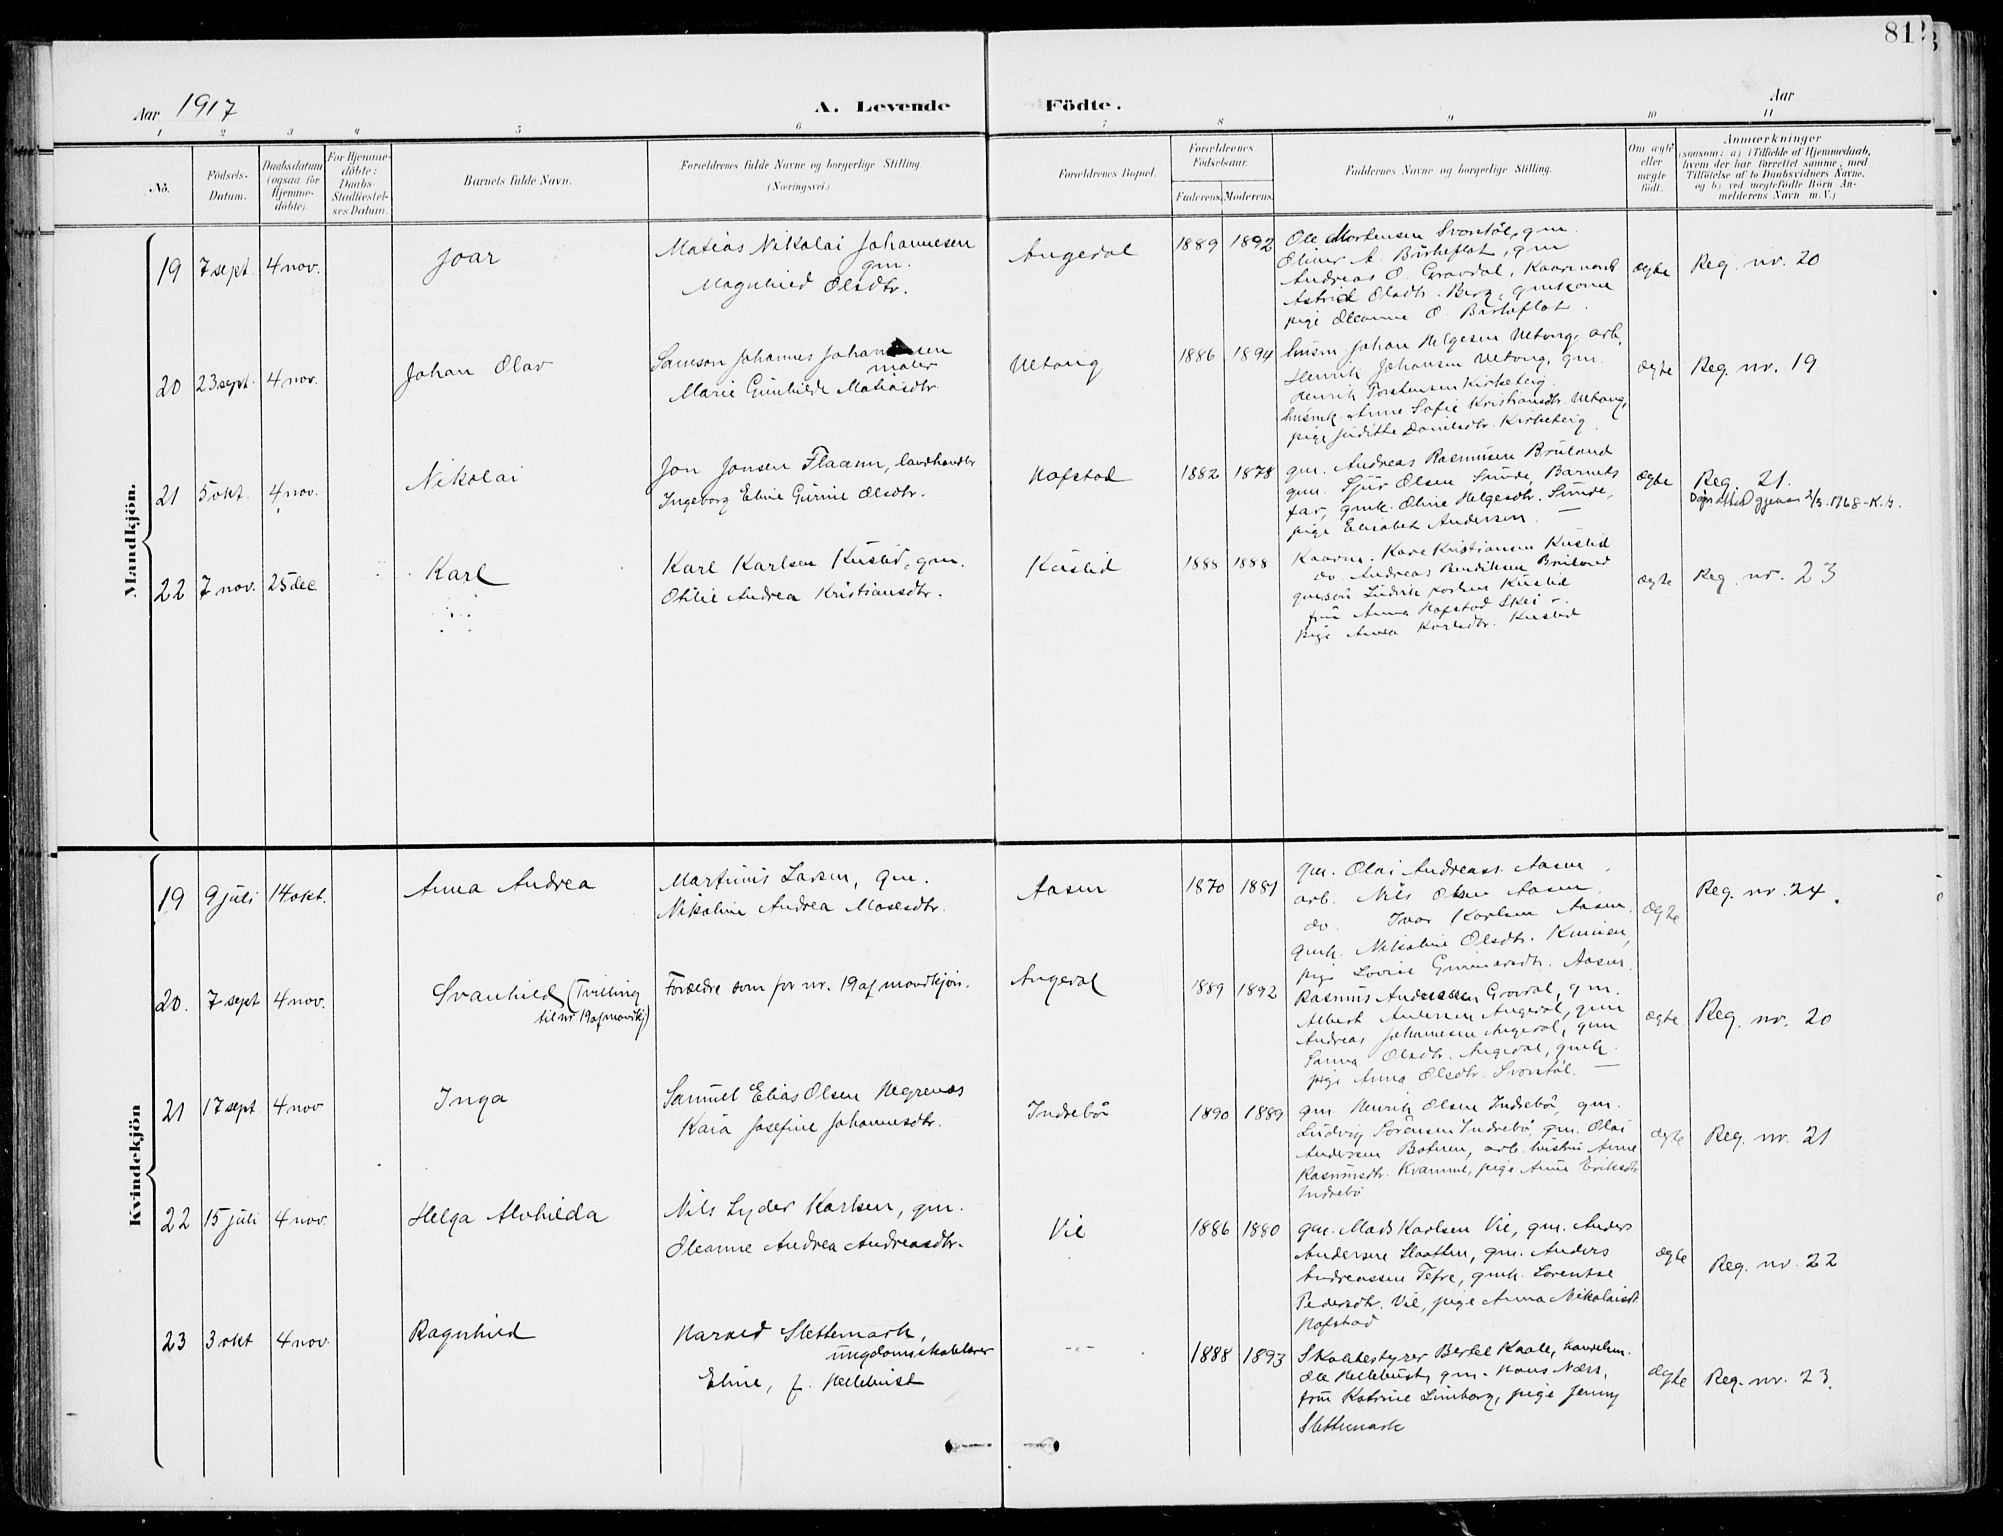 81
Aar 1917
A. Levende Födte.
Aar
1 2 3 4 5 6 7 8 9 10 11
No.
Födsels-Datum.
Daabsdatum (ogsaa for Hjemme-döbte).
For Hjemme-döbte: Daabs-Stadfæstel-ses Datum.
Barnets fulde Navn.
Forældrenes fulde Navne og borgerlige Stilling.
(Næringsvei.)
Forældrenes Bopæl.
Forældrenes Födselsaar.
Faderens. Moderens.
Faddernes Navne og borgerlige Stilling.
Om ægte eller uægte födt.
Anmærkninger
(saasom: a) i Tilfælde af Hjemmedaab, hvem der har forrettet samme, med Tilföielse af to Daabsvidners Navne, og b) ved uægtefödte Börn An-melderens Navn m.V.)
Mandkjön.
19 7 sept. 4 nov. Joar
Matias Nikolai Johannesen
gm.
Magnhild Olsdtr.
Angedal 1889 1892
Ole Mortensen Svorstöl, gm.
Oliver A. Birkeflot, gm
Andreas O. Gravdal,
Astrid Olsdtr. Berg, gmkone
pige Oleanne O. Birkeflot.
ægte Reg. nr. 20
20 23 sept. 4 nov. Johan Olav
Samson Johannes Johannesen
maler
Marie Gunhilde Matiasdtr.
Vetong 1886 1894
husm. Johan Helgesen Vetong, arb.
Henrik Johansen Vetong, gm.
Henrik Torstensen Kirketeig.
husmk. Anne Sofie Kristiansdtr. Vetong,
pige Juditte Danielsdtr. Kirketeig
ægte Reg. nr. 19
21 5 okt. 4 nov. Nikolai
Jon Jonsen Flaamn, landhandler
Ingeborg Eline Gurine Olsdtr.
Hafstad 1882 1878
gm. Andreas Rasmusen Bruland
gm. Sjur Olsen Sunde, Barnets
far, gmk. Oline Helgesdtr. Sunde,
pige Elisabet Andersen. —
ægte Reg. 21.
22 7 nov. 25 dec Karl
Karl Karlsen Kuslid, gm.
Otilie Andrea Kristiansdtr.
Kuslid 1888 1888
Kaarm. Kristiansen Kuslid
do. Andreas Bendiksen Bruland
gmsön Ludvik Karlsen Kuslid
fru Anna Hafstad Skei -.
pige Anna Karlsdtr. Kuslid
ægte Reg. nr. 23
Kvindekjön
19 9 juli 14 okt. Anna Andrea
Martinus Larsen, gm.
Nikoline Andrea Mosesdtr.
Aasen 1870 1881
gm. Olai Andreass. Aasen
arb. Nils Olsen Aasen
do. Ivar Karlsen Aasen.
gmk. Nikoline Olsdtr.
pige Lovise Gunnarsdtr. Aasen.
ægte Reg. nr. 24.
20. 7 sept 4 nov. Svanhild (Tvilling
til nr. 19 af mandkj)
Forældre som for nr. 19 af mandkjön.
Angedal 1889 1892
Rasmus Andreassen Gravdal, gm.
Albert Andersen Angedal, gm
Andreas Johannesen Angedal, gm
Sanna Olsdtr. Angedal, gmk.
pige Anna Olsdtr. Svorstöl. —
ægte Reg. nr. 20
21 17 sept. 4 nov Inga
Samuel Elias Olsen Hegrenæs
Kaia Josefine Johannesdtr.
Indrebö 1890 1889
gm Henrik Olsen Indrebö, gm.
Ludvig Sörensen Indrebö, gm. Olai
Andersen Botnen, arb. hustru Anne
Rasmusdtr. Kvamme, pige Anne Eriksdtr
Indrebö
ægte Reg. nr. 21
22 15 juli 4 nov. Helga Alvhilda
Nils Lyder Karlsen, gm.
Oleanne Andrea Andreasdtr.
Vie 1886 1880
gm. Mads Karlsen Vie, gm. Anders
Andersen Slaatten, gm. Anders
Andreassen Tefre, gmk. Lorentse
Pedersdtr. Vie, pige Anna Nikolaisdt
Hafstad
ægte Reg. nr. 22
23 3 okt 4 nov. Ragnhild
Harald Slettemark,
ungdomsskolelærer
Eline, f. Hellebust
-"- 1888 1893
Skolebestyrer Bertel Kaale, handelsm.
Ole Hellebust, gm. Hans Næss,
fru Katrine Limborg, pige Jenny
Slettemark
ægte Reg. nr. 23.